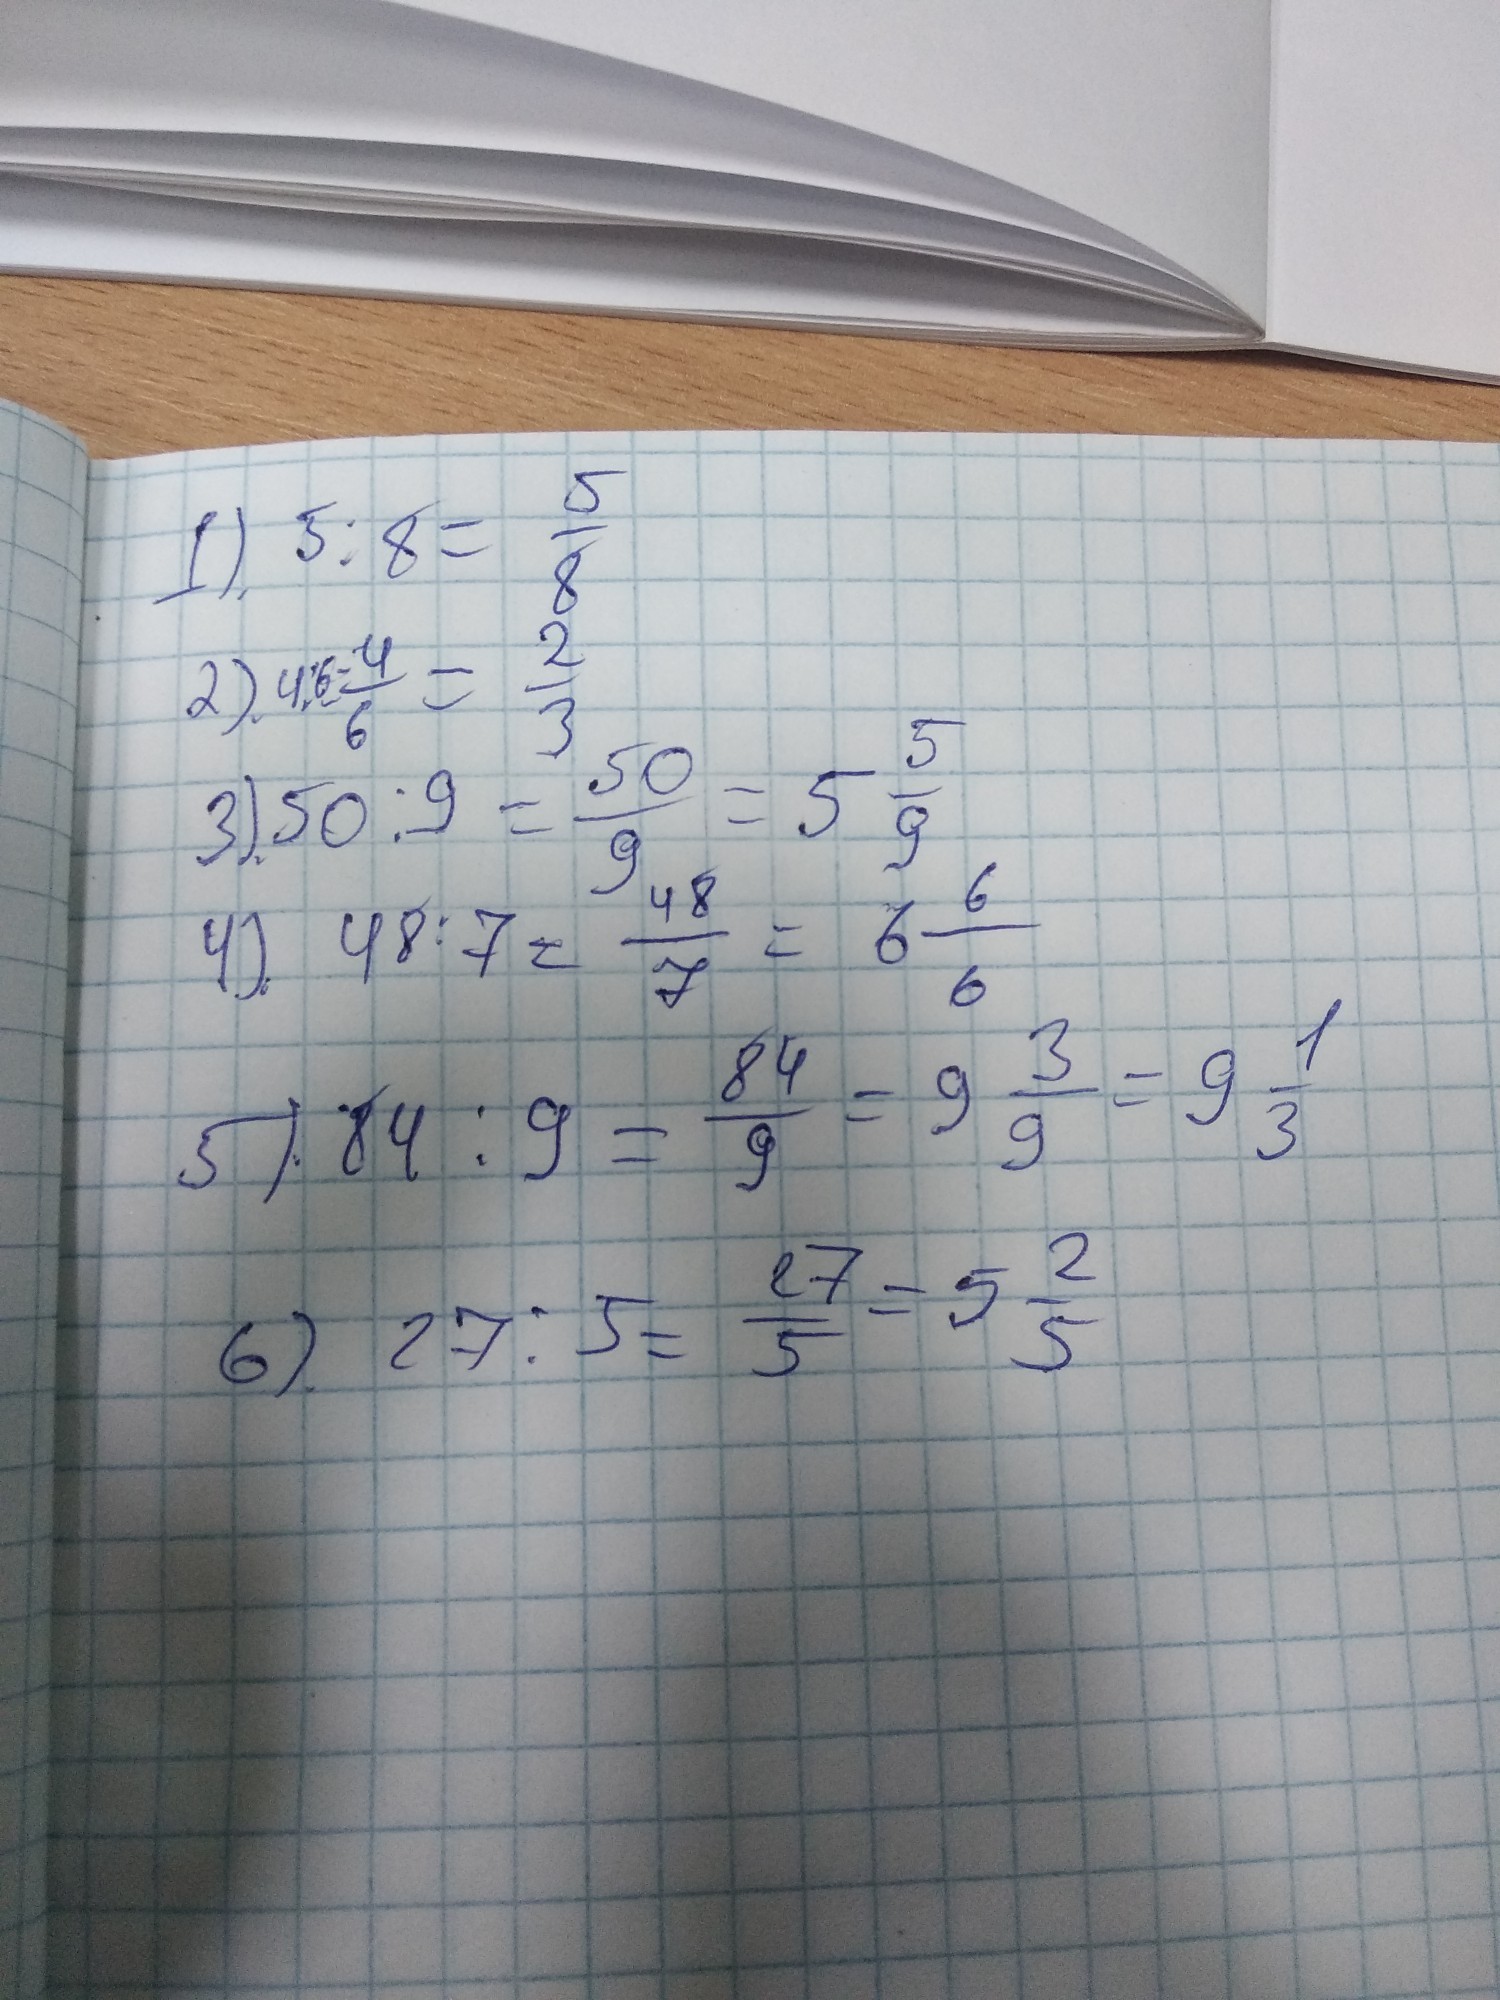 1). 5:8 = 5/8
2). 4:6 = 4/6 = 2/3
3). 50:9 = 50/9 = 5 5/9
4). 48:7 = 48/7 = 6 6/6
5). 84:9 = 84/9 = 9 3/9 = 9 1/3
6). 27:5 = 27/5 = 5 2/5